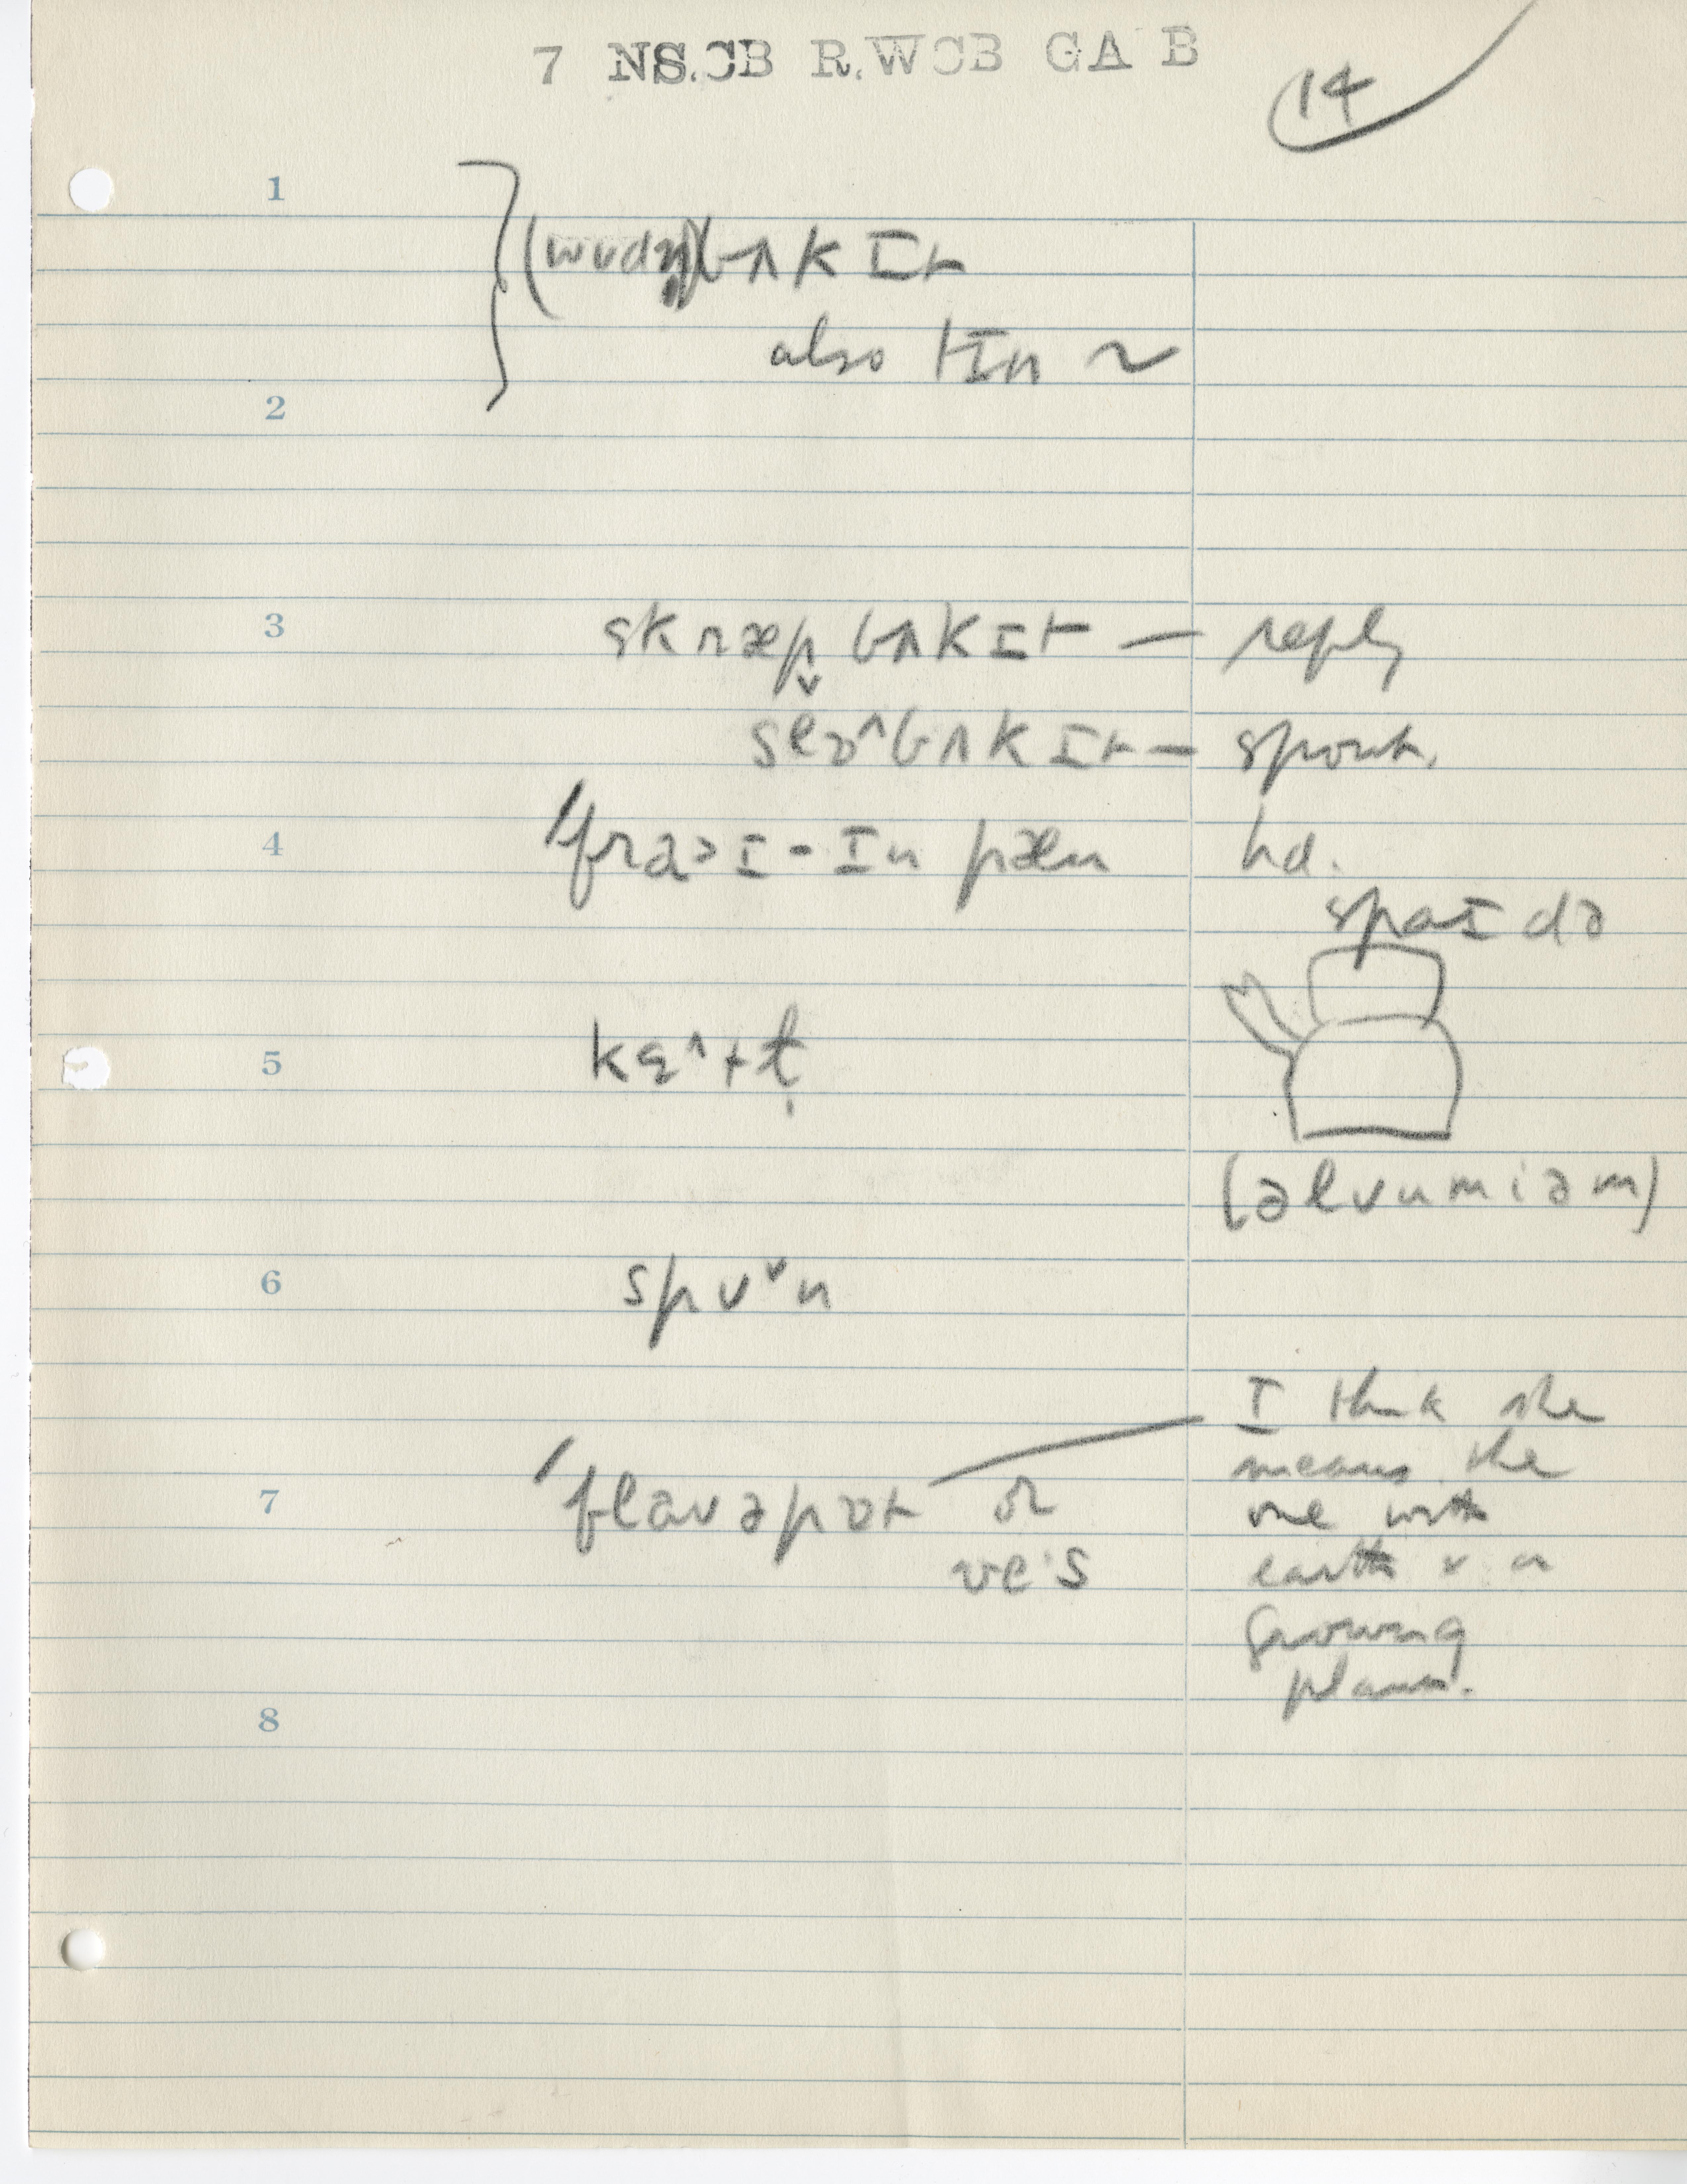 7 NS.CB R.WCB GA B
14
1
(wʊdn̩) bʌkɪt
also tɪn ~
2
3
skræp bʌkɪt — reply
slɒ^bʌkɪt — spout.
4
ˈfraɪ-ɪn pæn hd.
spaɪdə
5
(əlvumiəm)
6
spʊˇn
7
ˈflaʊəpɒt or
ve·s
I think she
means the
one with
earth & a
growing
plant.
8